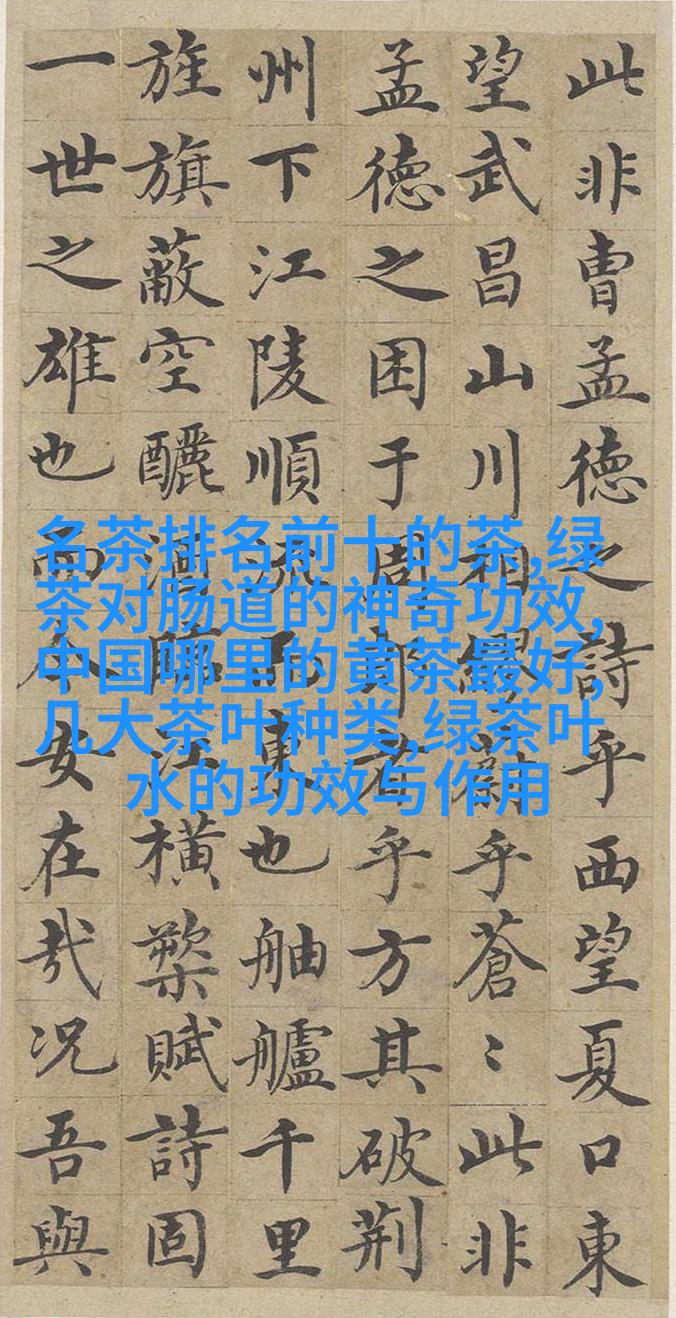 此非曹孟德之詩乎西望夏口東
望武昌山川相繆鬱乎蒼〻此非
孟德之困于周郎者乎方其破荆
州下江陵順流而東也舳艫千里
旌旗蔽空釃酒臨江橫槊賦詩固
一世之雄也而今安在哉况吾與
名茶排名前十的茶,绿
茶对肠道的神奇功效,
中国哪里的黄茶最好,
几大茶叶种类,绿茶叶
水的功效与作用